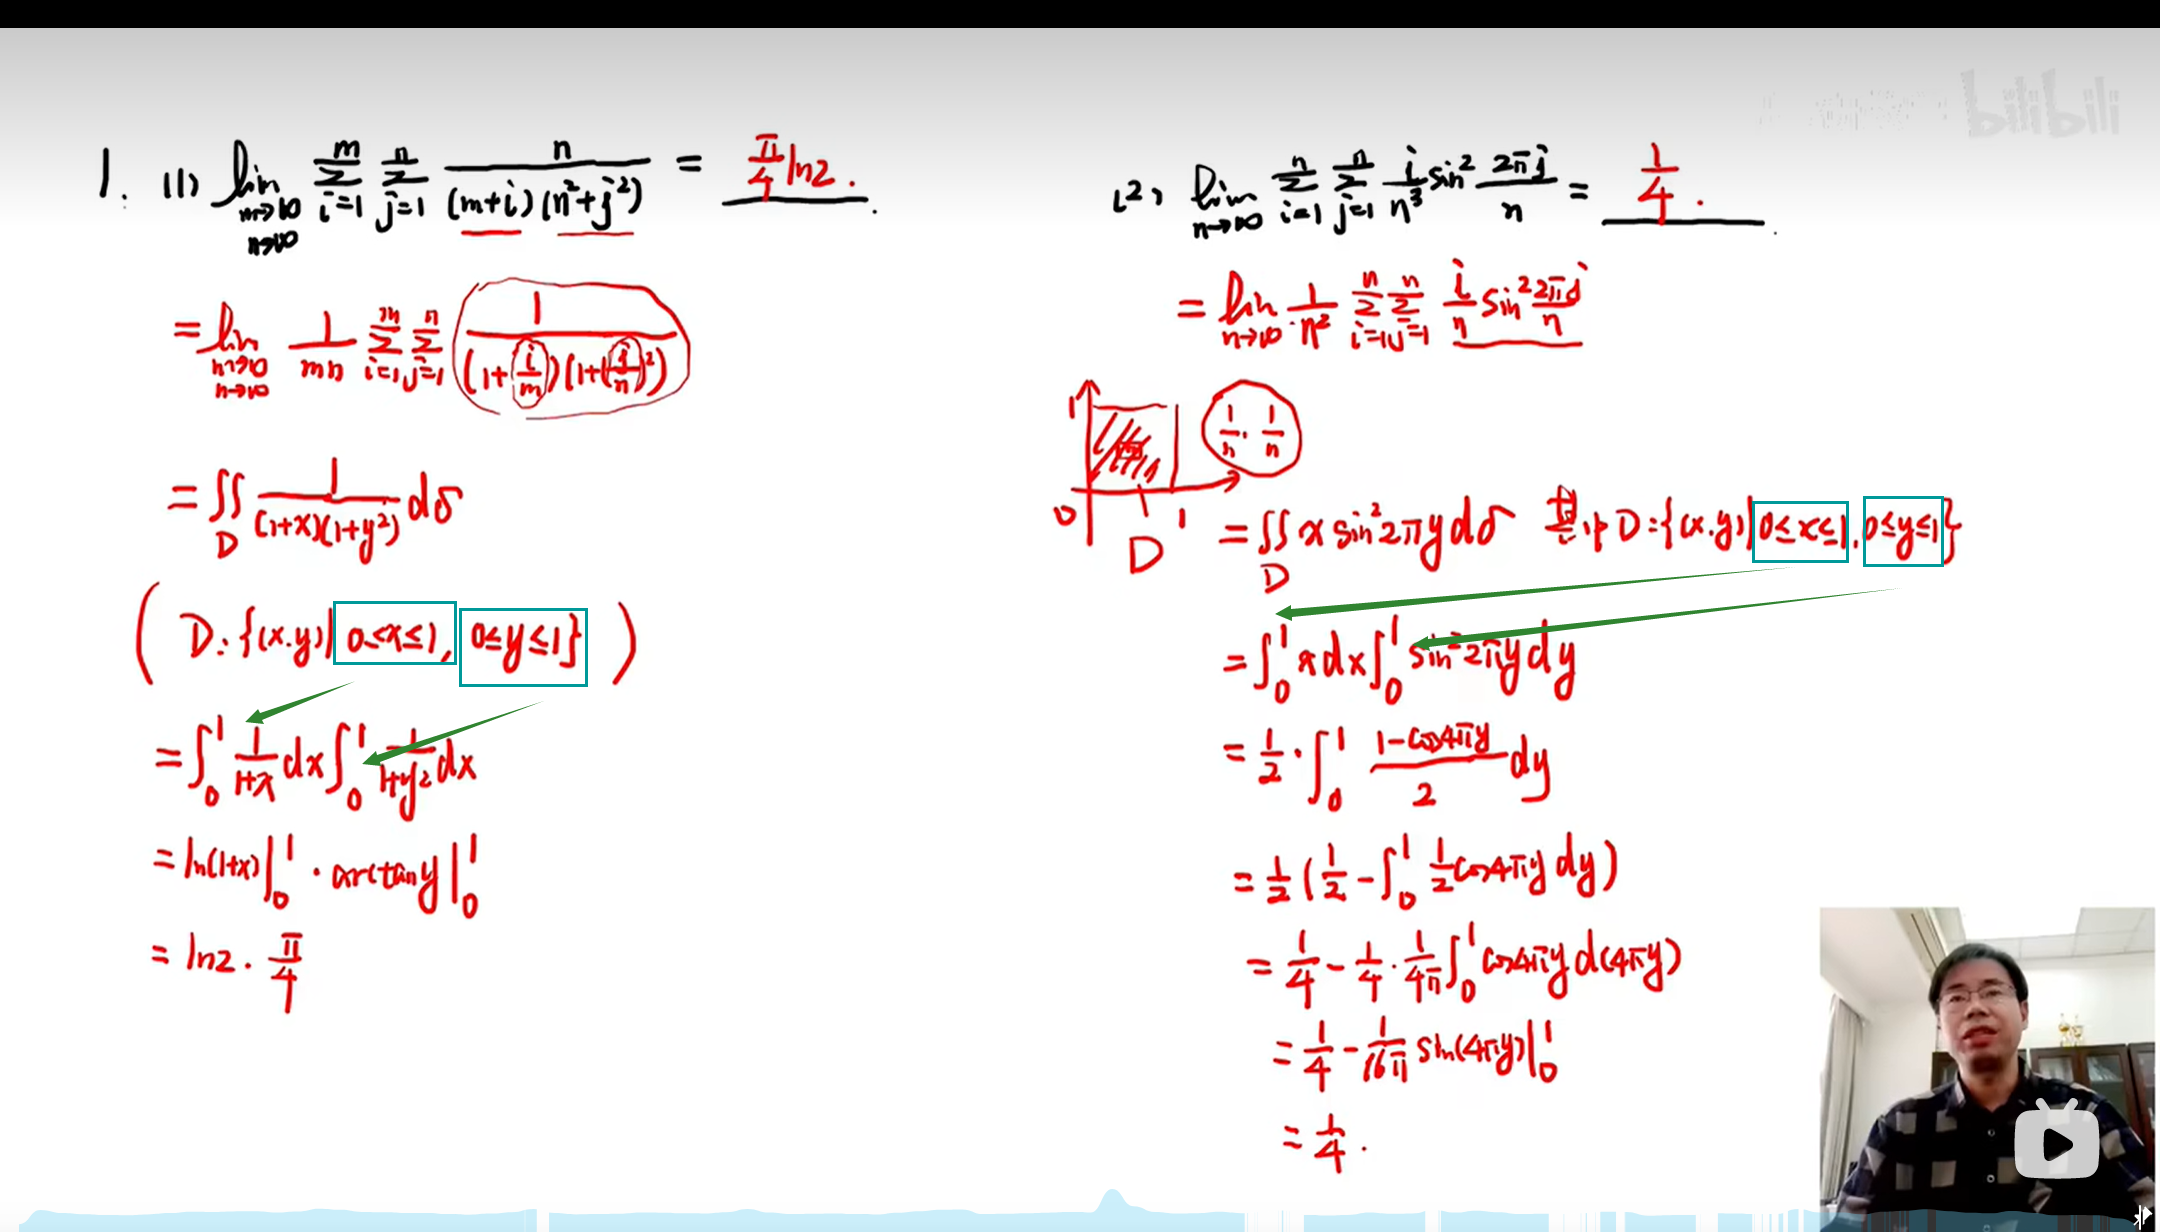 bilibili
1. (1) lim_{m→∞ n→∞} Σ_{i=1}^{m} Σ_{j=1}^{n} n/((m+i)(n²+j²)) = π/4 ln2.
= lim_{m→∞ n→∞} 1/(mn) Σ_{i=1}^{m} Σ_{j=1}^{n} 1/((1+i/m)(1+(j/n)²))
= ∬_D 1/((1+x)(1+y²)) dσ
( D: {(x.y)| 0≤x≤1, 0≤y≤1} )
= ∫₀¹ 1/(1+x) dx ∫₀¹ 1/(1+y²) dx
= ln(1+x)|₀¹ · arctany|₀¹
= ln2 · π/4
(2) lim_{n→∞} Σ_{i=1}^{n} Σ_{j=1}^{n} i/n³ sin² 2πj/n = 1/4.
= lim_{n→∞} 1/n² Σ_{i=1}^{n} Σ_{j=1}^{n} i/n sin² 2πj/n
1
1/n · 1/n
0 D 1
= ∬_D x sin²2πy dσ 其中 D: {(x.y)| 0≤x≤1, 0≤y≤1}
= ∫₀¹ x dx ∫₀¹ sin²2πy dy
= 1/2 · ∫₀¹ (1-cos4πy)/2 dy
= 1/2 (1/2 - ∫₀¹ 1/2 cos4πy dy)
= 1/4 - 1/4 · 1/4π ∫₀¹ cos4πy d(4πy)
= 1/4 - 1/16π sin(4πy)|₀¹
= 1/4.